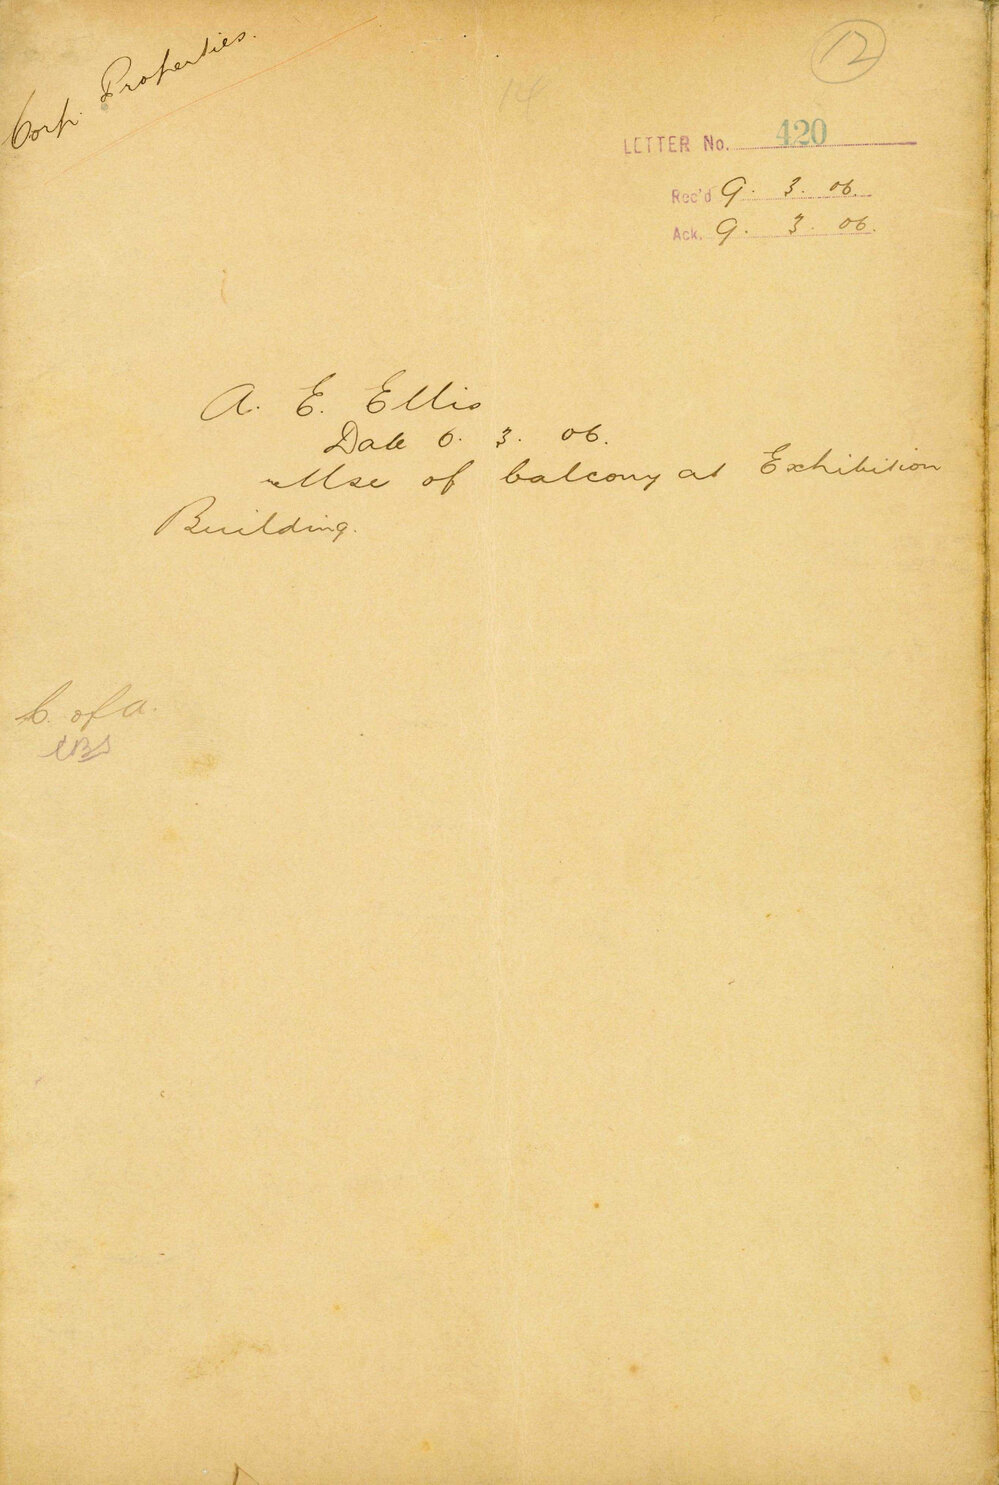 Corp. Properties.
12
14
LETTER No. 420
Rec'd 9. 3. 06.
Ack. 9. 3. 06.
A. E. Ellis
Date 6. 3. 06.
Use of balcony at Exhibition
Building.
C. of A.